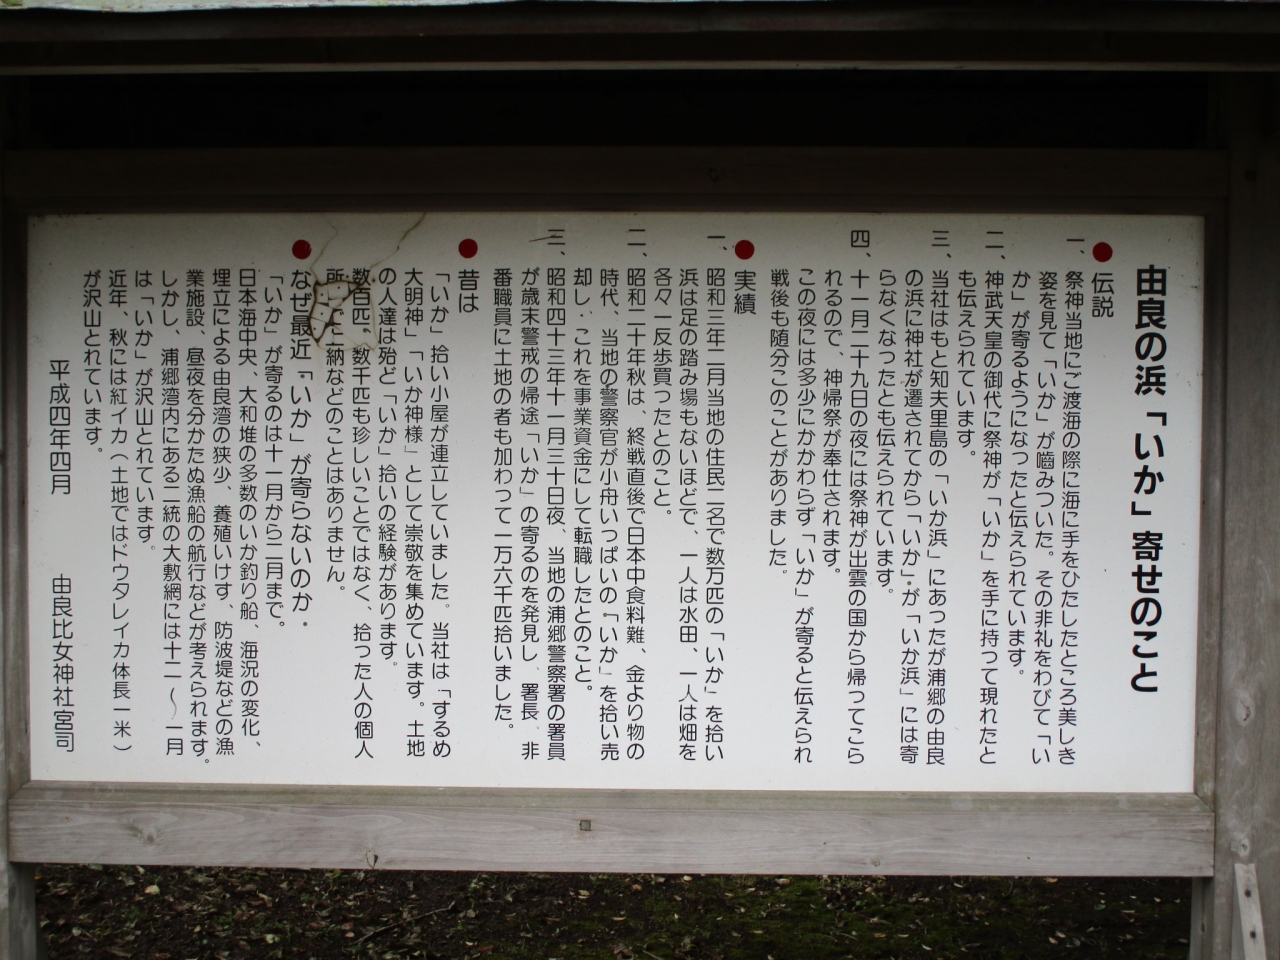 由良の浜「いか」寄せのこと
●伝説
一、祭神当地にご渡海の際に海に手をひたしたところ美しき
姿を見て「いか」が嚙みついた。その非礼をわびて「い
か」が寄るようになったと伝えられています。
二、神武天皇の御代に祭神が「いか」を手に持つて現れたと
も伝えられています。
三、当社はもと知夫里島の「いか浜」にあったが浦郷の由良
の浜に神社が遷されてから「いか」が「いか浜」には寄
らなくなったとも伝えられています。
四、十一月二十九日の夜には祭神が出雲の国から帰ってこら
れるので、神帰祭が奉仕されます。
この夜には多少にかかわらず「いか」が寄ると伝えられ
戦後も随分このことがありました。
●実績
一、昭和三年二月当地の住民二名で数万匹の「いか」を拾い
浜は足の踏み場もないほどで、一人は水田、一人は畑を
各々一反歩買ったとのこと。
二、昭和二十年秋は、終戦直後で日本中食料難、金より物の
時代、当地の警察官が小舟いっぱいの「いか」を拾い売
却し、これを事業資金にして転職したとのこと。
三、昭和四十三年十一月三十日夜、当地の浦郷警察署の署員
が歳末警戒の帰途「いか」の寄るのを発見し、署長、非
番職員に土地の者も加わって一万六千匹拾いました。
●昔は
「いか」拾い小屋が連立していました。当社は「するめ
大明神」「いか神様」として崇敬を集めています。土地
の人達は殆ど「いか」拾いの経験があります。
数百匹、数千匹も珍しいことではなく、拾った人の個人
所 上納などのことはありません。
●なぜ最近「いか」が寄らないのか
「いか」が寄るのは十一月から二月まで。
日本海中央、大和堆の多数のいか釣り船、海況の変化、
埋立による由良湾の狭少、養殖いけす、防波堤などの漁
業施設、昼夜を分かたぬ漁船の航行などが考えられます。
しかし、浦郷湾内にある二統の大敷網には十二〜一月
は「いか」が沢山とれています。
近年、秋には紅イカ(土地ではドウタレイカ体長一米)
が沢山とれています。
平成四年四月 由良比女神社宮司